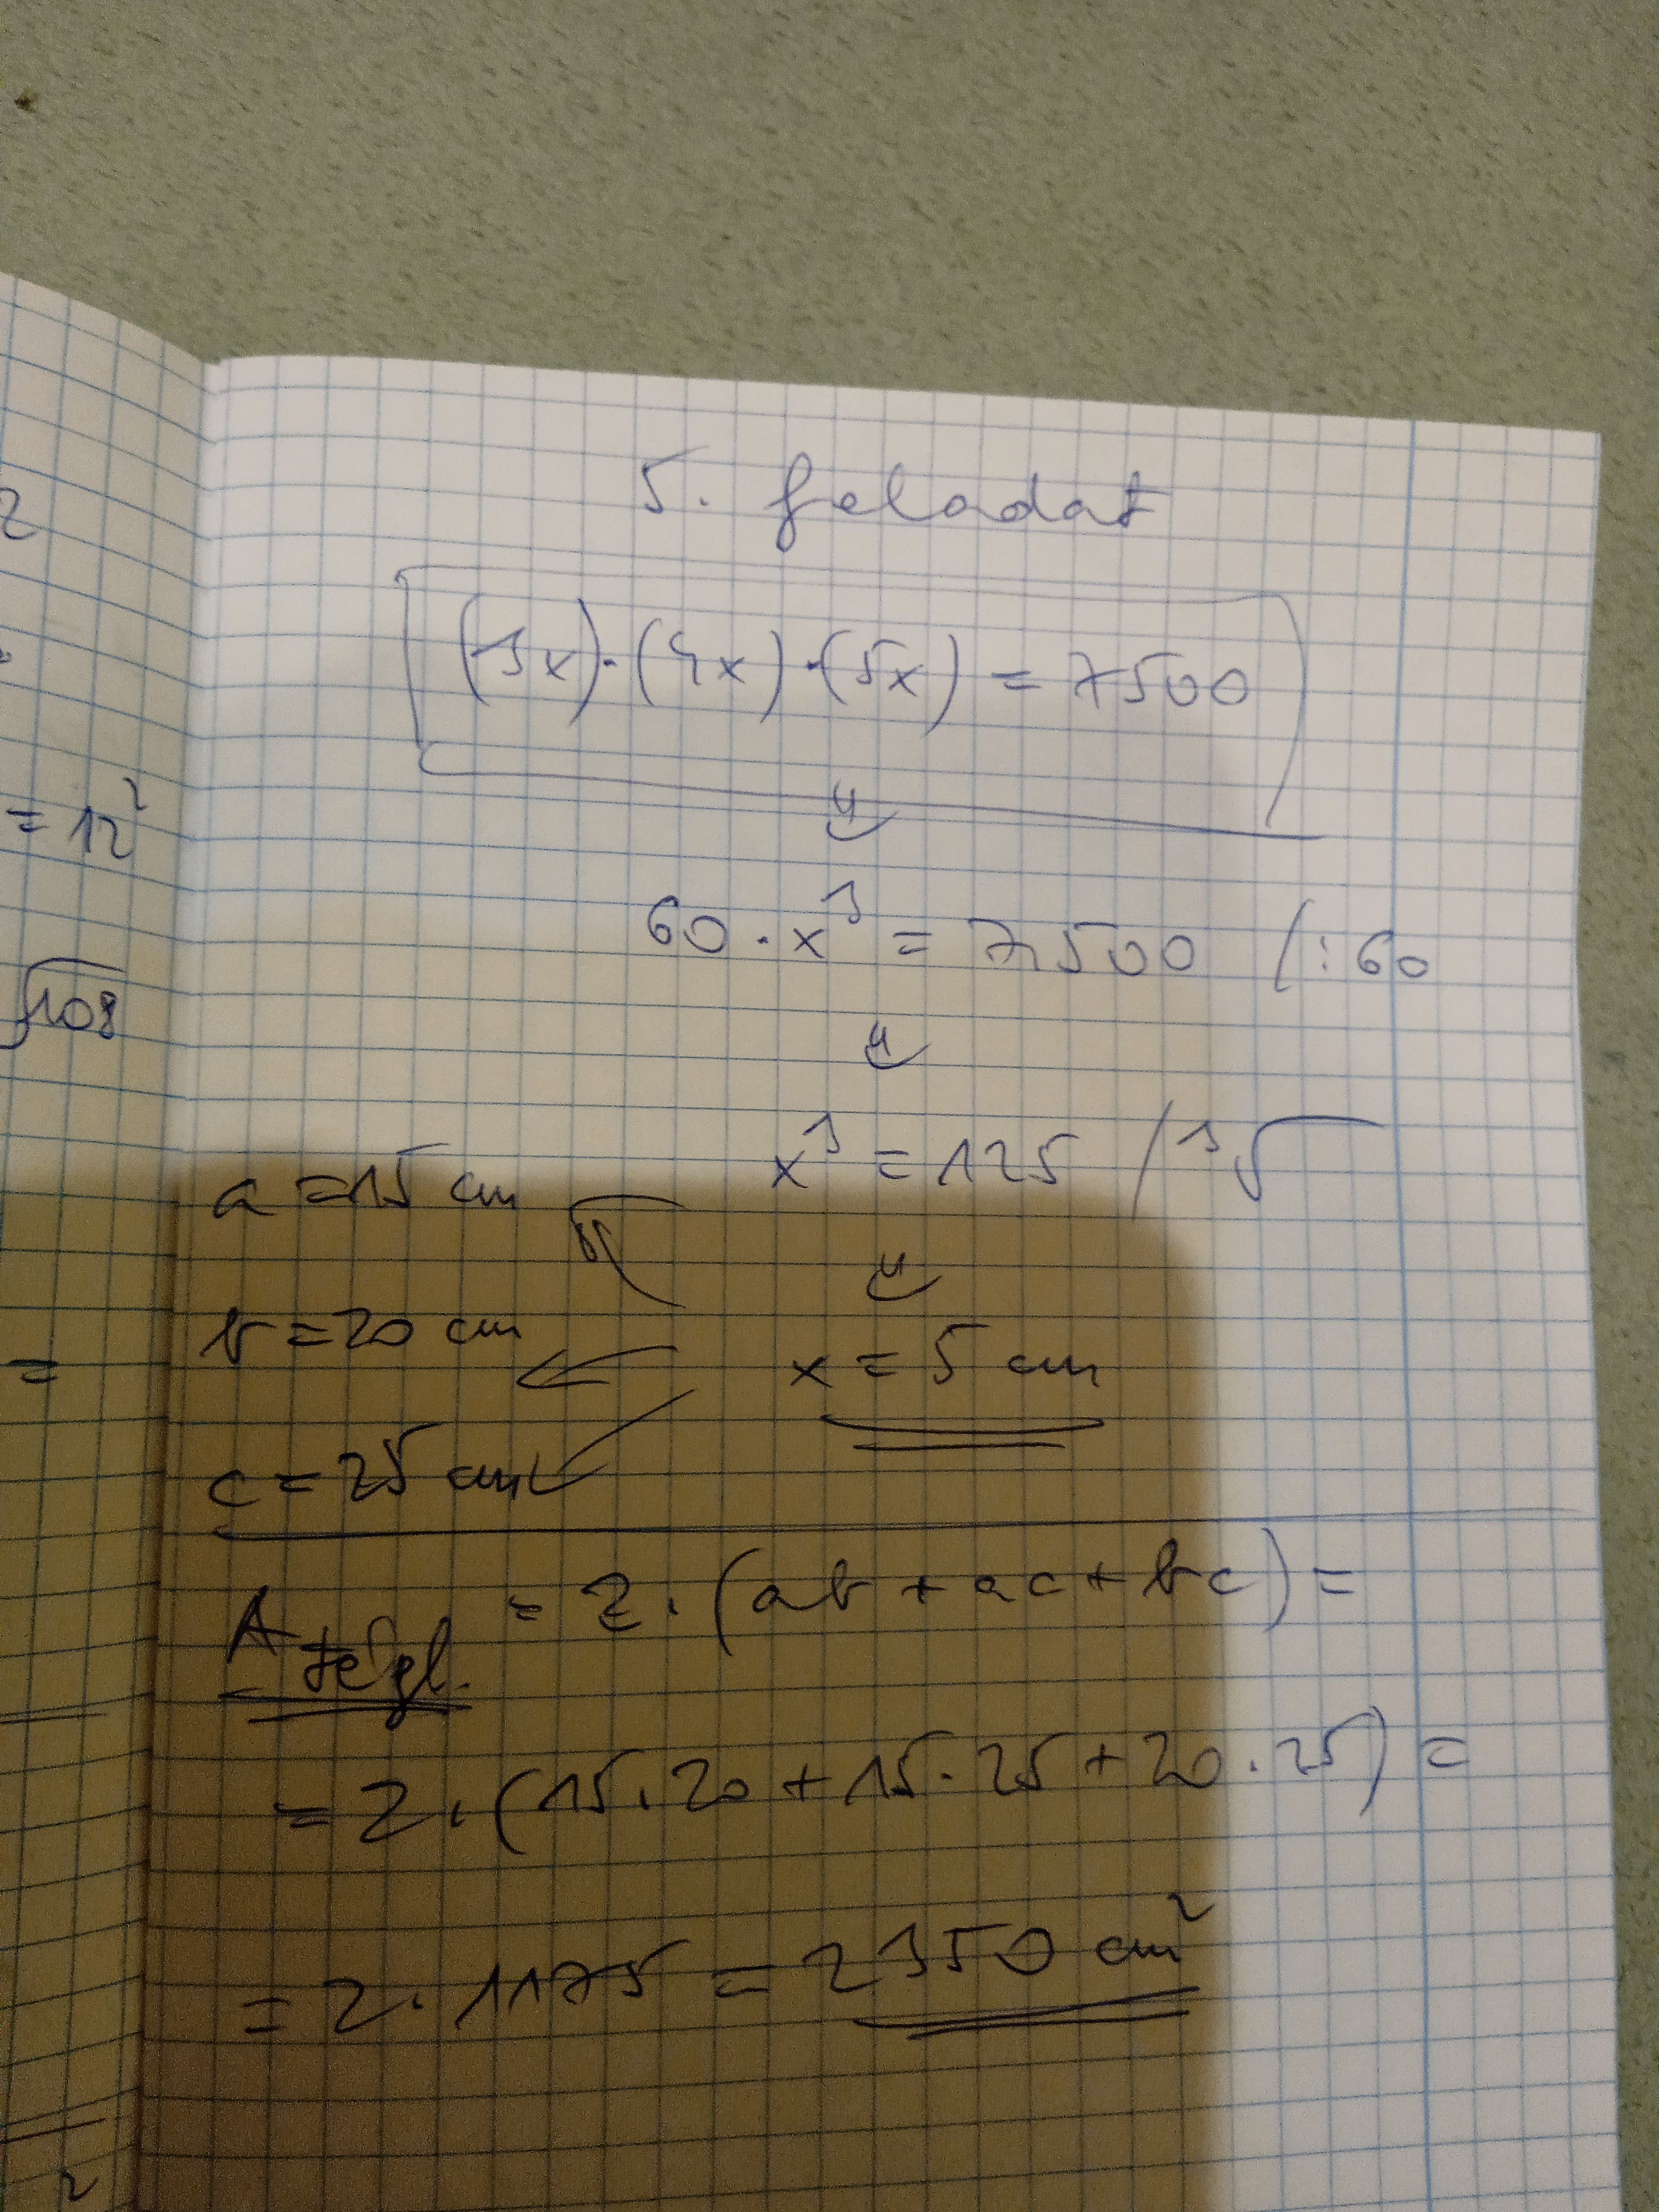 2
= 12²
√108
=
2
5. feladat
(3x)·(4x)·(5x) = 7500
⇓
60·x³ = 7500 /:60
⇓
x³ = 125 /³√
⇓
a = 15 cm
b = 20 cm
x = 5 cm
c = 25 cm
A tégl. = 2·(ab + ac + bc) =
= 2·(15·20 + 15·25 + 20·25) =
= 2·1175 = 2350 cm²